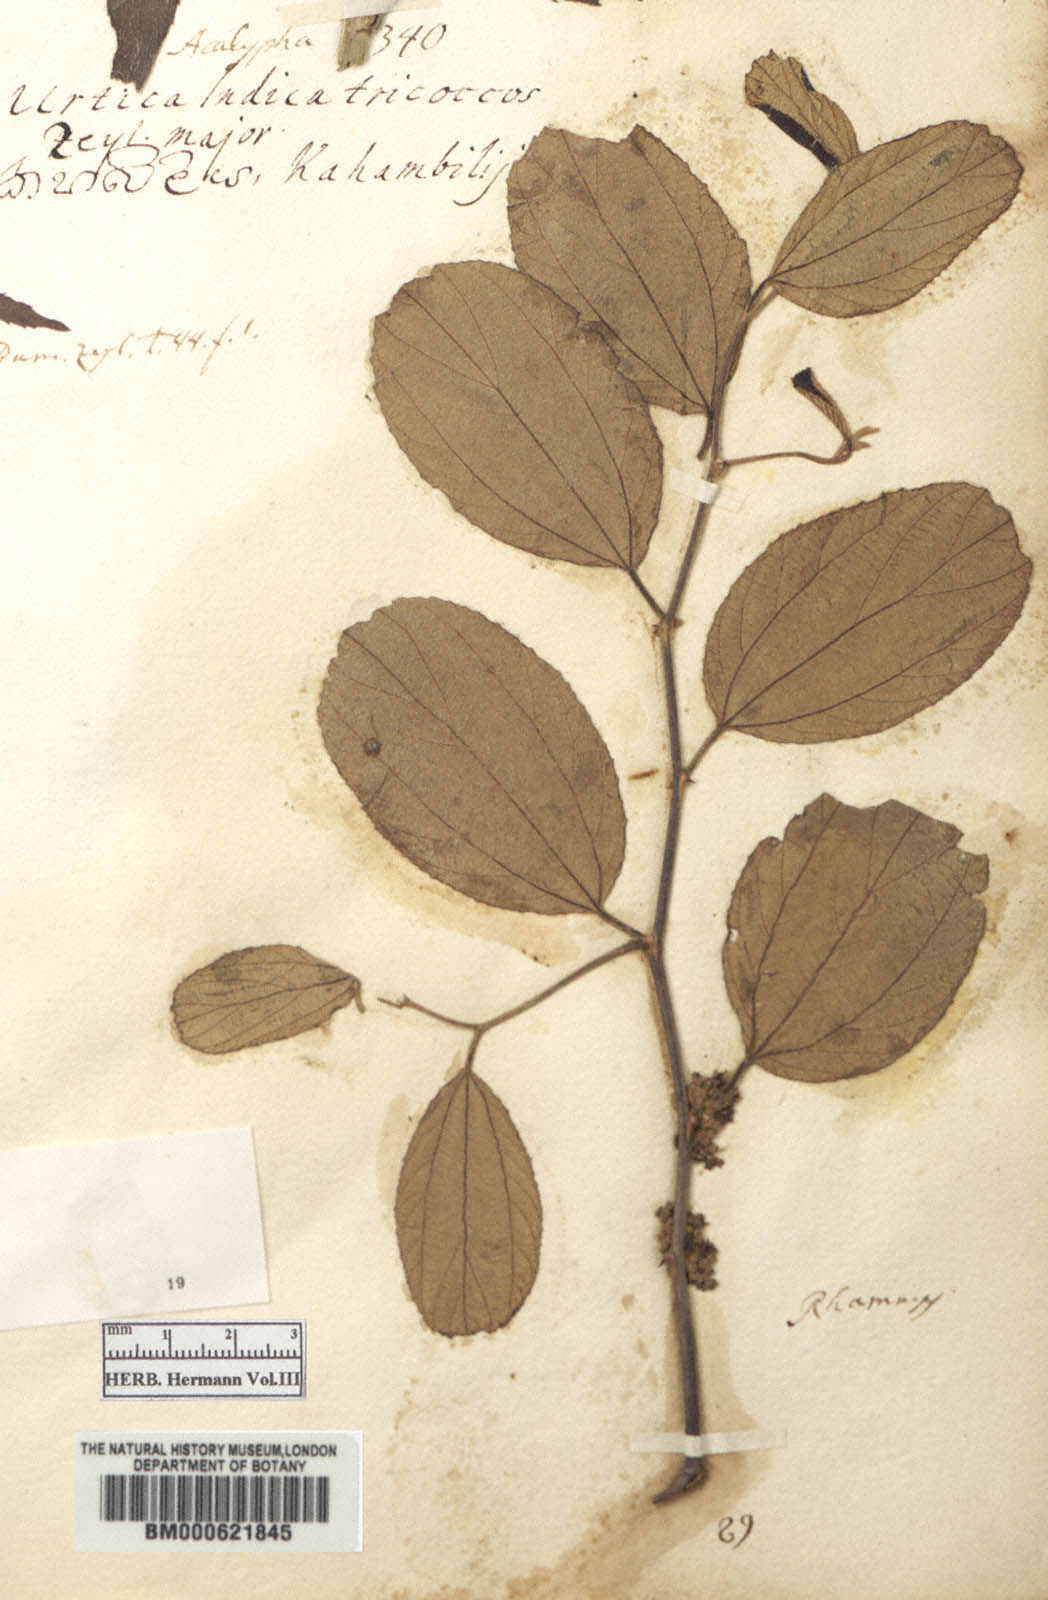 Acalypha 340
Urtica Indica tricoccos
Zeyl. major.
Kahambilij
zeyl. t. 44. f. 1.
19
mm 1 2 3
HERB. Hermann Vol.III
THE NATURAL HISTORY MUSEUM, LONDON
DEPARTMENT OF BOTANY
BM000621845
29